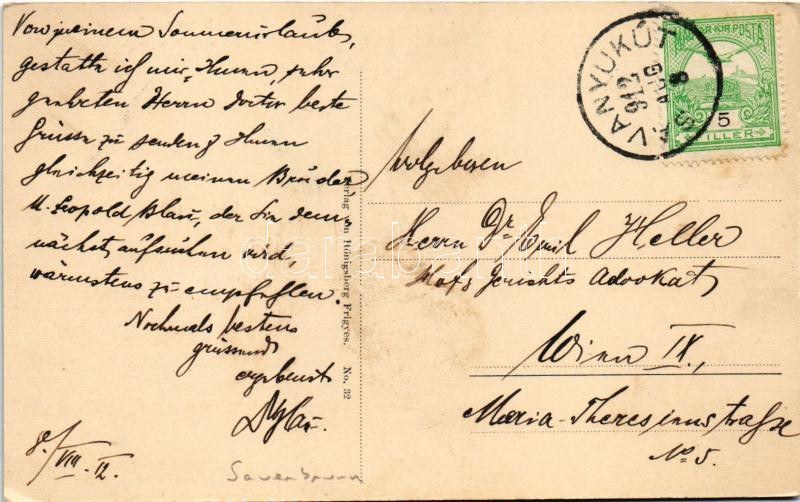 Von meinem Sommerurlaub,
gestatte ich mir, Ihnen, sehr
geehrten Herrn Doctor beste
Grüsse zu senden & Ihnen
gleichzeitig meinen Bruder
H. Leopold Blau, der Sie dem-
nächst aufsuchen wird,
wärmstens zu empfehlen.
Nochmals bestens
grüssend
ergebenst
Blau.
8/VIII. 12.
Sauerbrunn
Verlag von Hönigsberg Frigyes. No. 32
MAGYAR KIR. POSTA
5
FILLER
VANYUKÚT
912
AUG
8
Wolgeboren
Herrn Dr Emil Heller
Hof & Gerichts Advokat
Wien IX.,
Maria-Theresienstraße
No 5.
darabanth